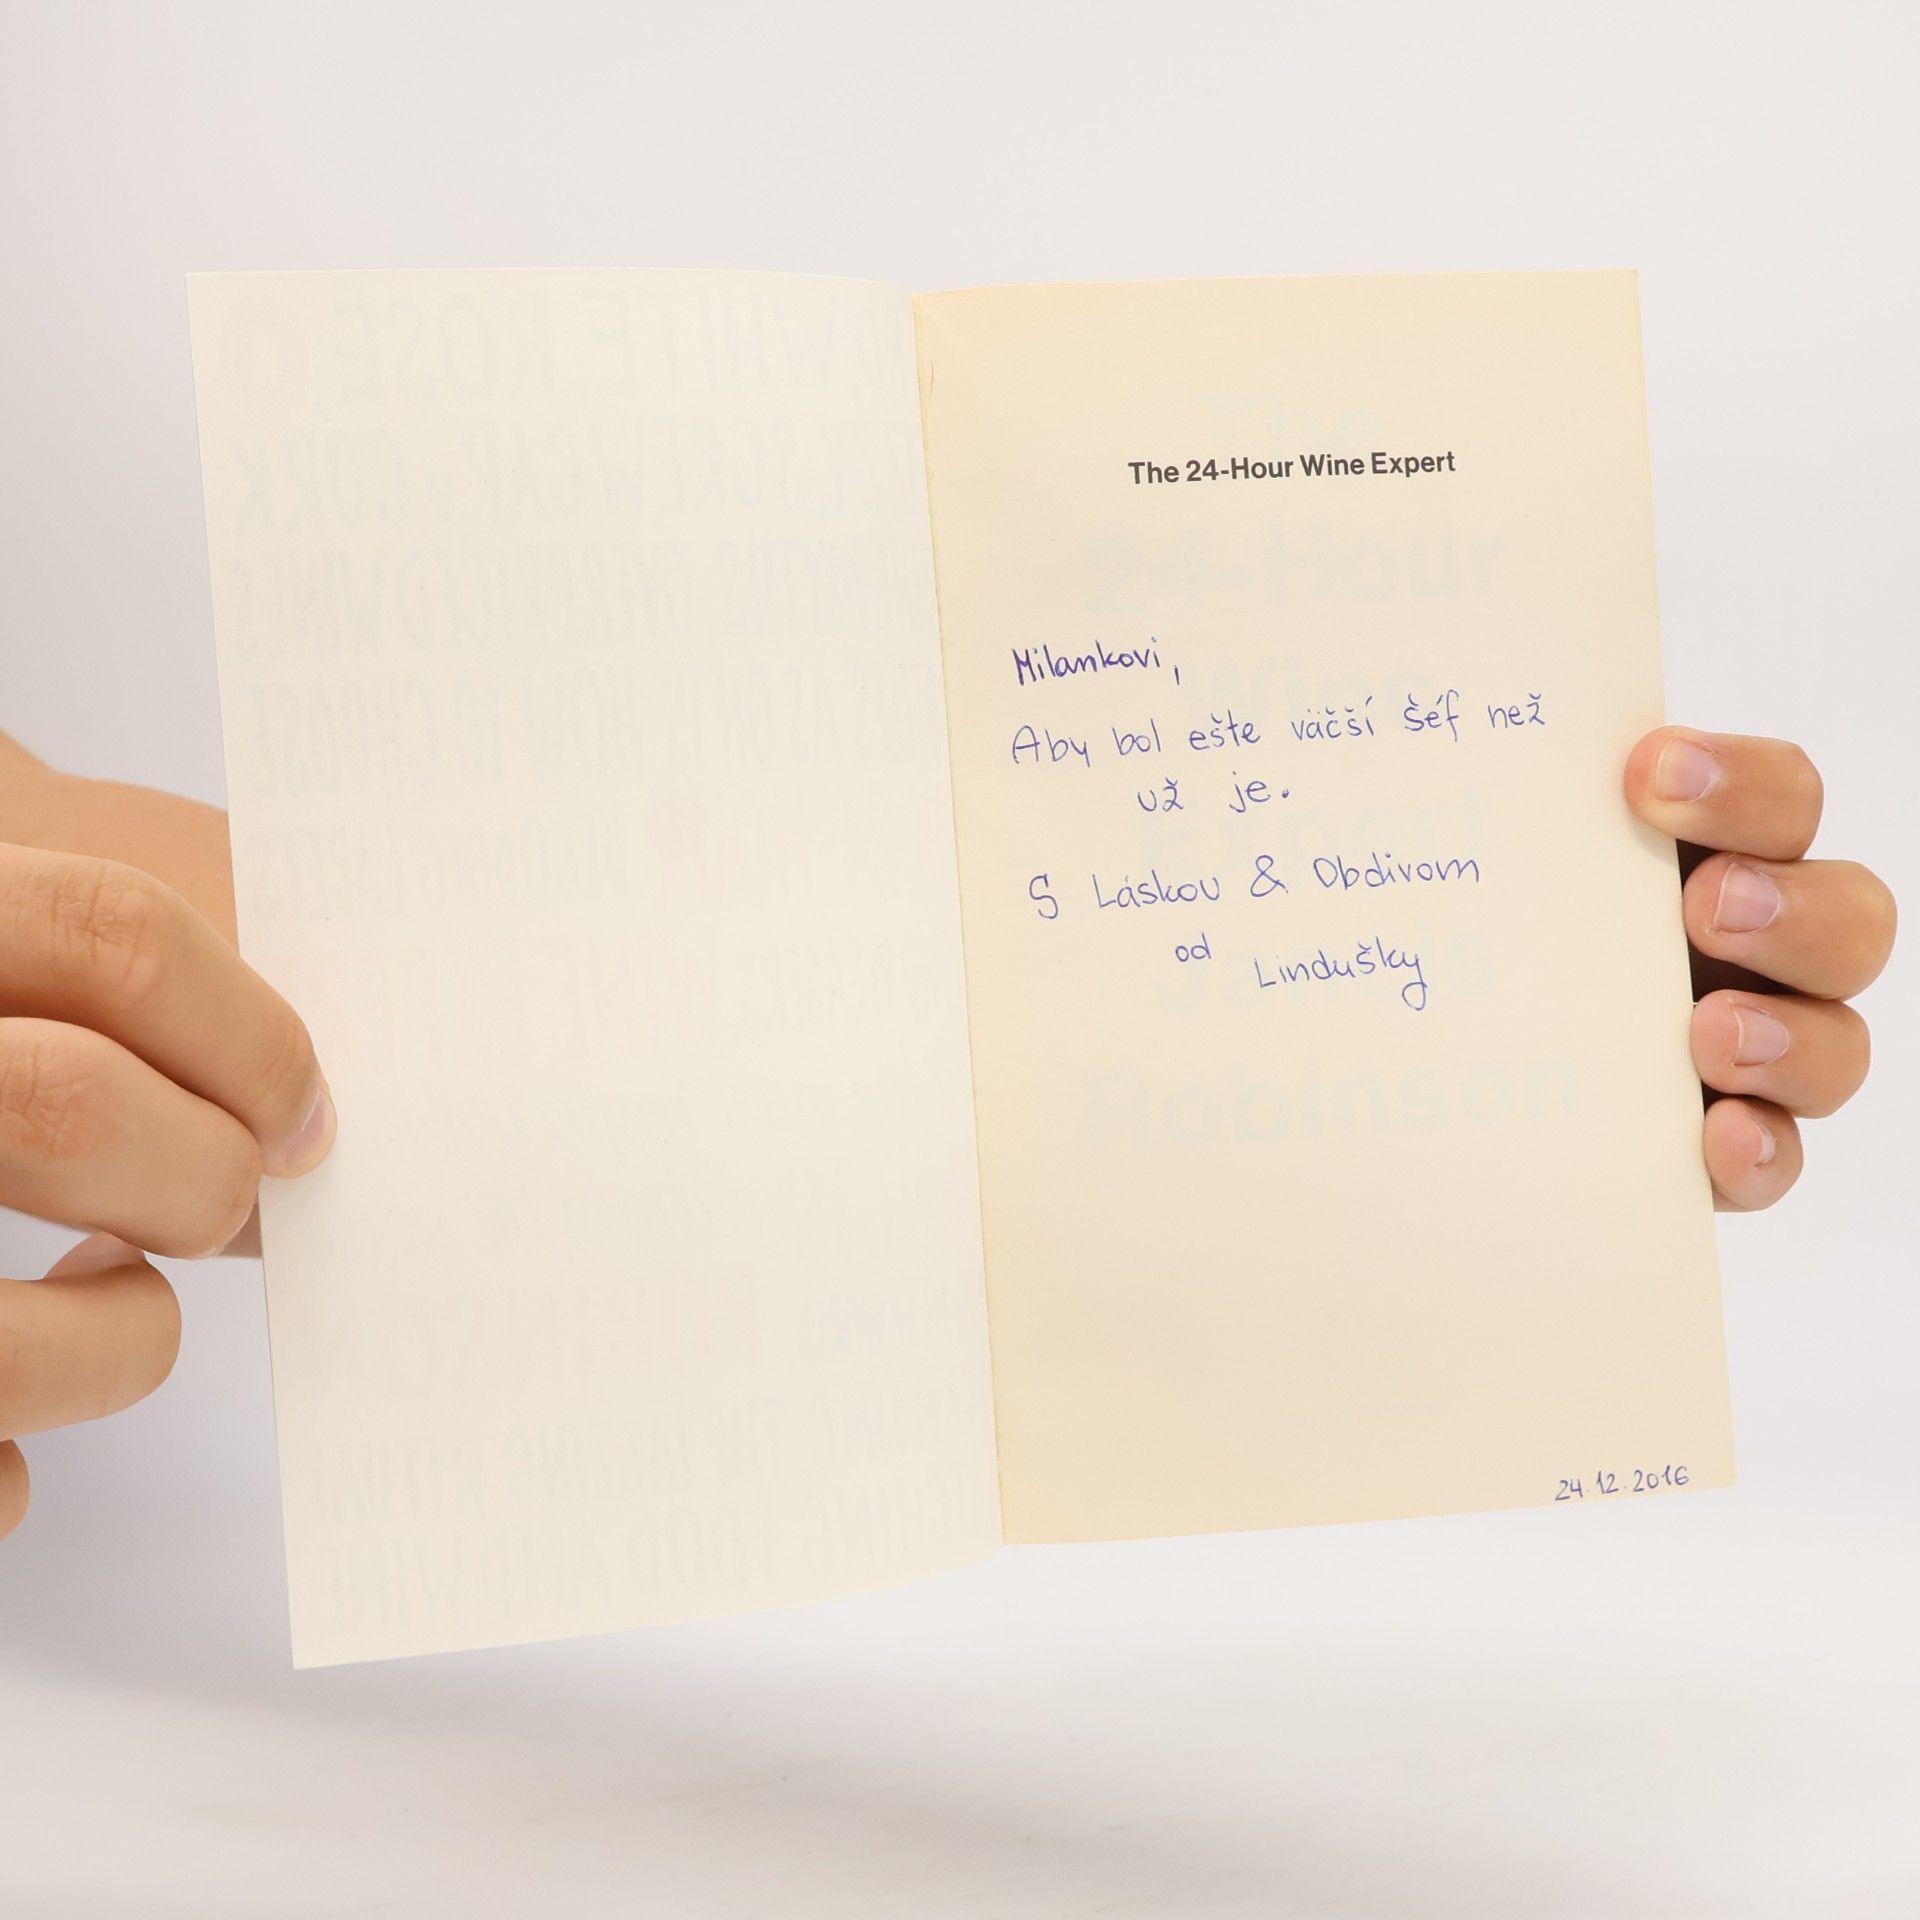 The 24-Hour Wine Expert
Milankovi,
Aby bol ešte väčší šéf než
už je.
S Láskou & Obdivom
od Lindušky
24.12.2016